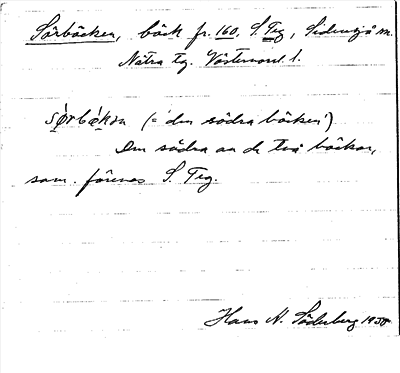 Sörbäcken, bäck fr. 160, S. Teg, Sidensjö sn.
Nätra tg. Västernorrl. l.
sǿrbǽkən (= 'den södra bäcken')
Den södra av de två bäckar,
som förenas S. Teg.
Hans N. Söderberg 1938